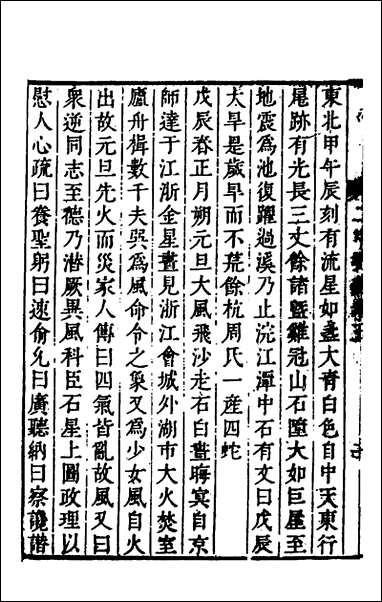 東北甲午辰刻有流星如盞大青白色自中天東行
尾跡有光長三丈餘諸暨雞冠山石墮大如巨屋至
地震為池復躍過溪乃止浣江潭中石有文曰戊辰
大旱是歲旱而不荒餘杭周氏一產四蛇
戊辰春正月朔元旦大風飛沙走石白晝晦冥自京
師達于江浙金星晝見浙江會城外湖市大火焚室
廬舟楫數千夫巽為風命令之象又為少女風自火
出故元旦先火而災家人傳曰四氣皆亂故風又曰
衆逆同志至德乃潜厥異風科臣石星上圖政理以
慰人心疏曰養聖躬曰速俞允曰廣聽納曰察讒譖